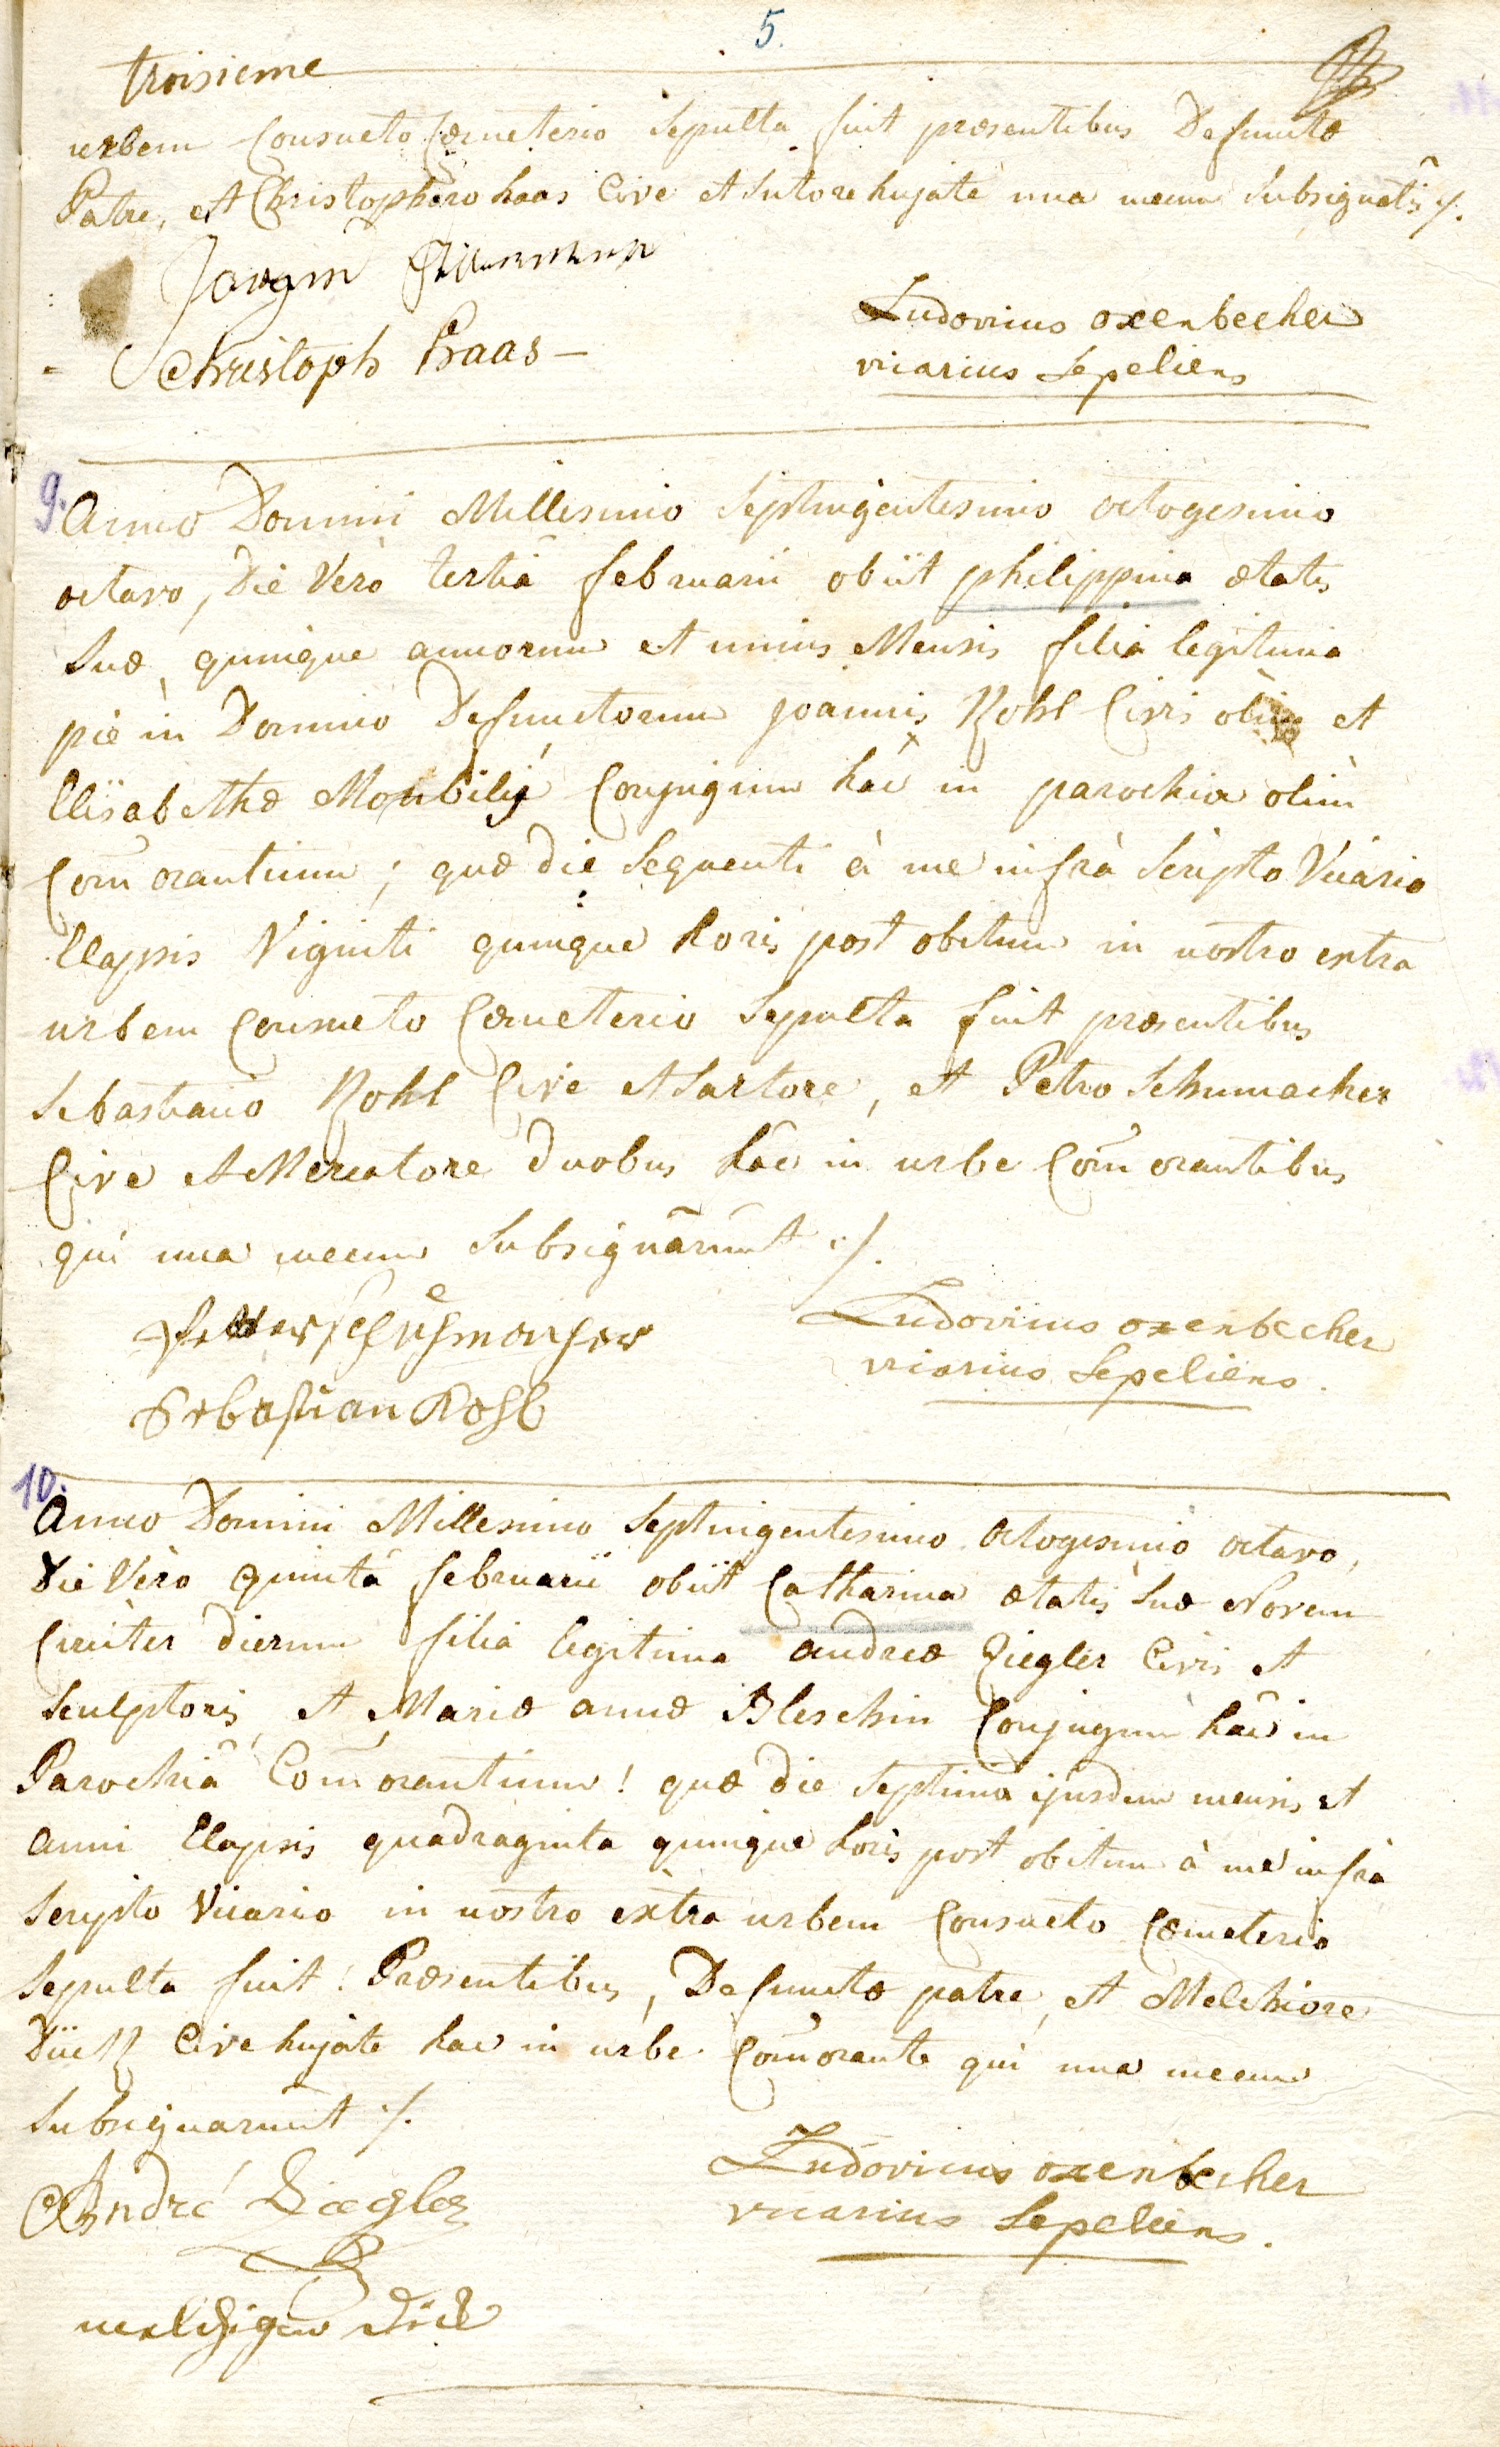 5.
troisieme
urbem Consueto Cœmeterio Sepulta fuit præsentibus Defunctæ
Patre, et Christophoro Haas Cive et Sutore hujate una mecum Subsignatis ./.
Joregin
Christoph Haas
Ludovicus oxenbecher
vicarius Sepeliens
9. Anno Domini Millesimo Septingentesimo octogesimo
octavo, Die Verò tertiâ februarii obiit philippina ætatis
Suæ, quinque annorum et unius Mensis filia legitima
piè in Domino Defunctorum joannis Kohl Civis olim et
Elisabethæ Conjugum hâc in parochia olim
Com̄orantium; quæ die Sequenti à me infrà Scripto Vicario
Elapsis Viginti quinque horis post obitum in nostro extra
urbem Consueto Cœmeterio Sepulta fuit præsentibus
Sebastiano Kohl Cive et Sartore, et Petro Schumacher
Cive et Mercatore duobus hâc in urbe Com̄orantibus
qui una mecum Subsignârunt ./.
Petter schuhmacher
Sebastian Kohl
Ludovicus oxenbecher
vicarius Sepeliens.
10. Anno Domini Millesimo Septingentesimo Octogesimo octavo,
Die Verò Quintâ februarii obiit Catharina ætatis Suæ Novem
Circiter dierum filia legitima andreæ Ziegler Civis et
Sculptoris, et Mariæ annæ Bleschin Conjugum hâc in
Parochiâ Com̄orantium! quæ die Septima ejusdem mensis et
anni Elapsis quadraginta quinque horis post obitum à me infrà
Scripto Vicario in nostro extra urbem Consueto Cœmeterio
Sepulta fuit! Præsentibus, Defunctæ patre, et Melchiore
Dück Cive hujate hac in urbe Com̄orante qui una mecum
Subsignarunt ./.
André Ziegler
Ludovicus oxenbecher
vicarius Sepeliens.
Dück